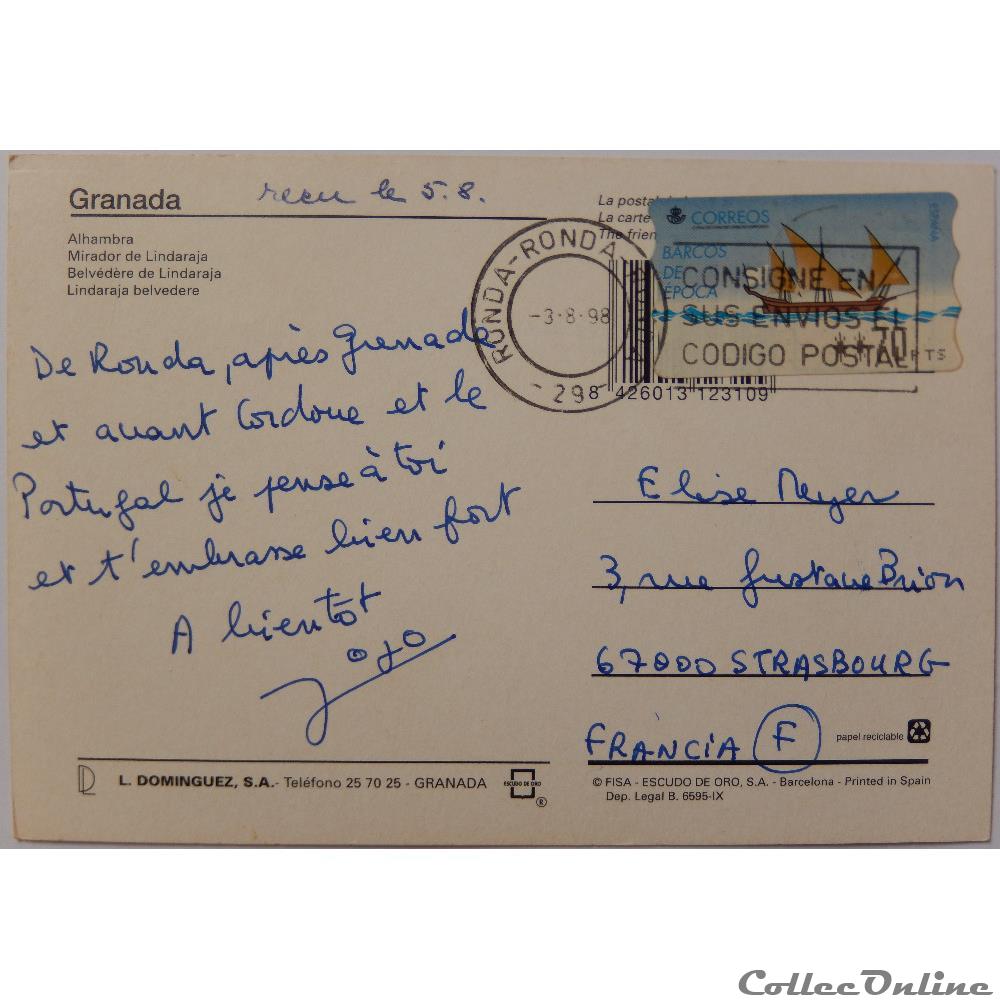 Granada
recu le 5.8.
Alhambra
Mirador de Lindaraja
Belvédère de Lindaraja
Lindaraja belvedere
La posta
La carte
The frien
CORREOS
ESPAÑA
BARCOS
DE
EPOCA
RONDA-RONDA
-3-8-98
-298
CONSIGNE EN
SUS ENVIOS EL
CODIGO POSTAL
**70 PTS
8 426013 123109
De Ronda, après Grenade
et avant Cordoue et le
Portugal je pense à toi
et t'embrasse bien fort
A bientôt
Jojo
Elise Meyer
3, rue Gustave Brion
67000 STRASBOURG
FRANCIA F
papel reciclable
L. DOMINGUEZ, S.A.- Teléfono 25 70 25 - GRANADA
ESCUDO DE ORO
®
© FISA - ESCUDO DE ORO, S.A. - Barcelona - Printed in Spain
Dep. Legal B. 6595-IX
CollecOnline